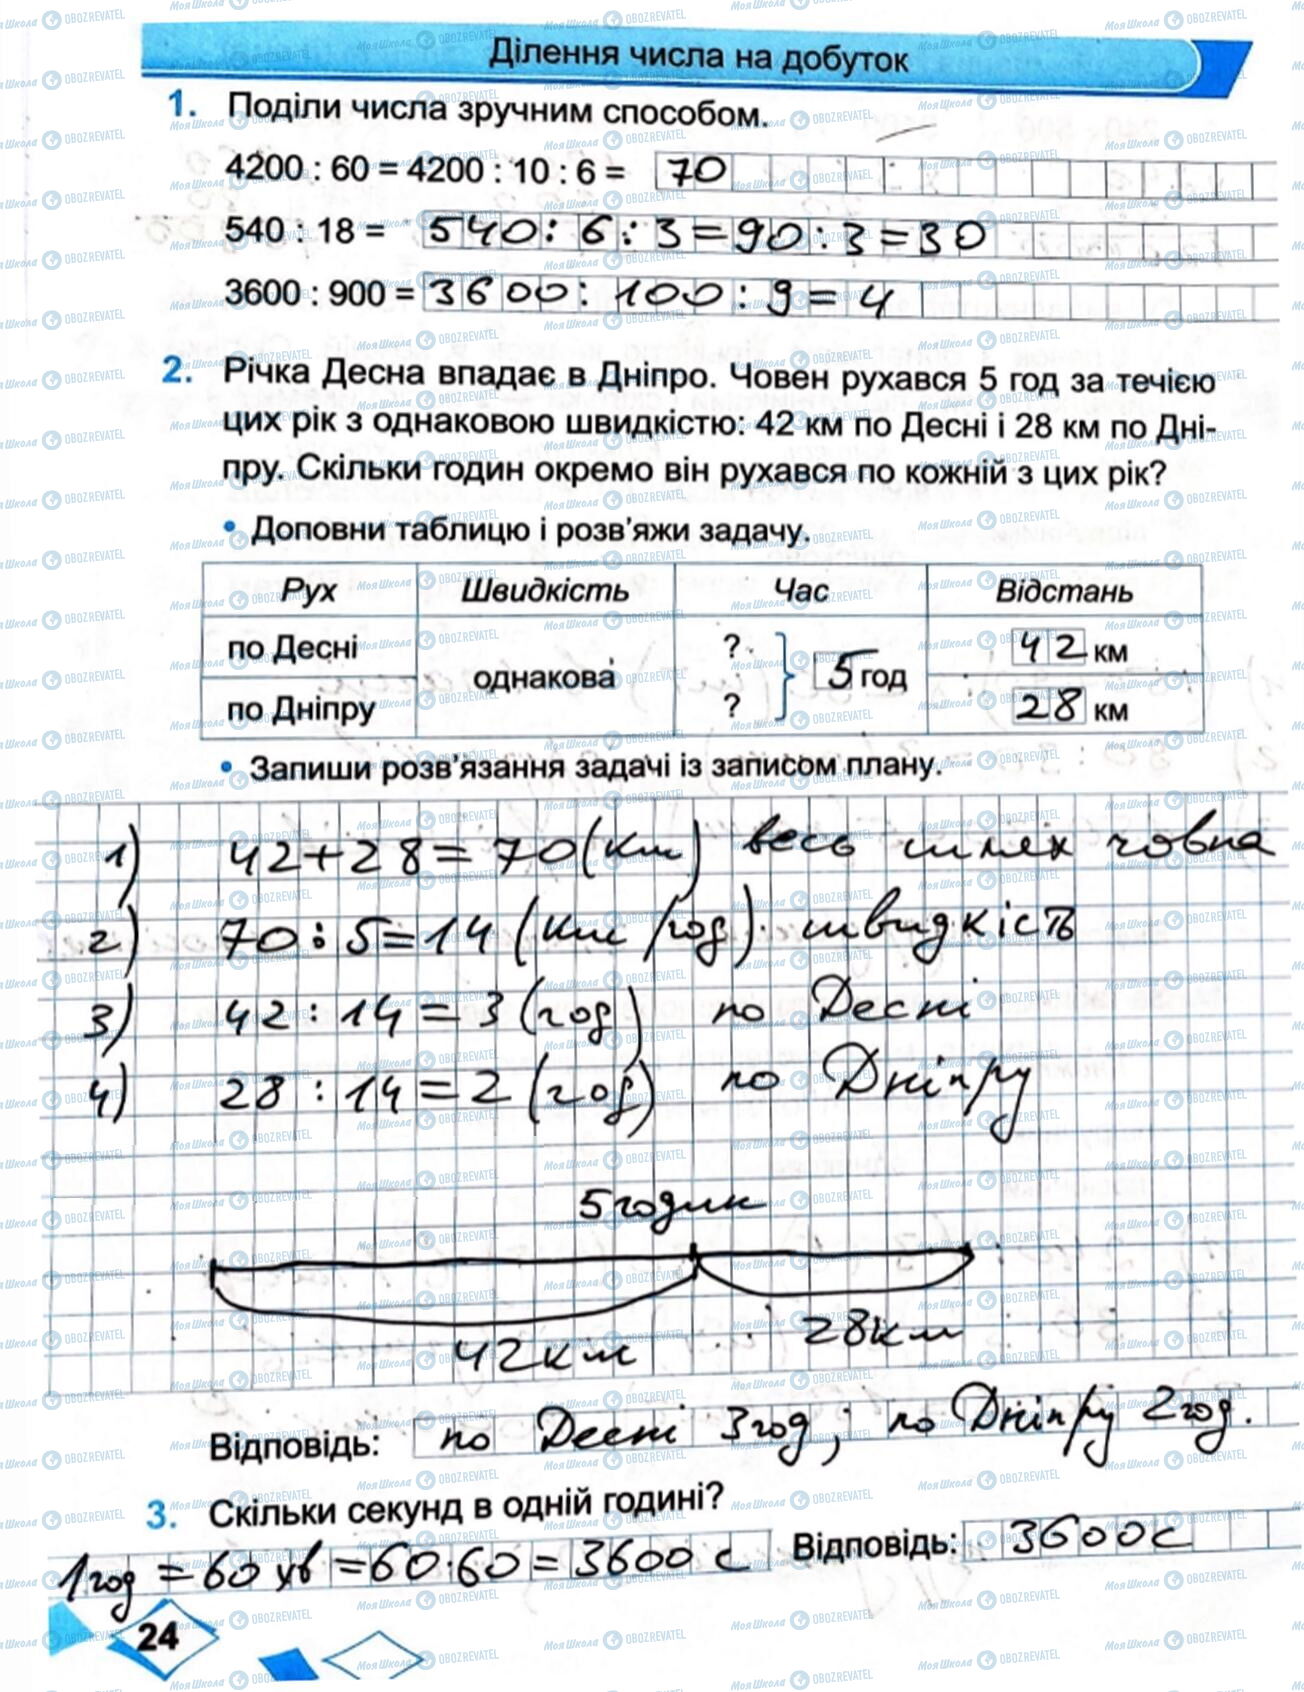 Ділення числа на добуток
1. Поділи числа зручним способом.
4200 : 60 = 4200 : 10 : 6 = 70
540 : 18 = 540 : 6 : 3 = 90 : 3 = 30
3600 : 900 = 3600 : 100 : 9 = 4
2. Річка Десна впадає в Дніпро. Човен рухався 5 год за течією
цих рік з однаковою швидкістю. 42 км по Десні і 28 км по Дні-
пру. Скільки годин окремо він рухався по кожній з цих рік?
• Доповни таблицю і розв'яжи задачу.
Рух Швидкість Час Відстань
по Десні однакова ? 5 год 42 км
по Дніпру ? 28 км
• Запиши розв'язання задачі із записом плану.
1) 42+28=70(км) весь шлях човна
2) 70:5=14 (км/год) швидкість
3) 42:14=3 (год) по Десні
4) 28:14=2 (год) по Дніпру
5 годин
42км 28км
Відповідь: по Десні 3 год; по Дніпру 2 год.
3. Скільки секунд в одній годині?
1 год = 60 хв = 60·60 = 3600 с Відповідь: 3600 с
24
МояШкола OBOZREVATEL